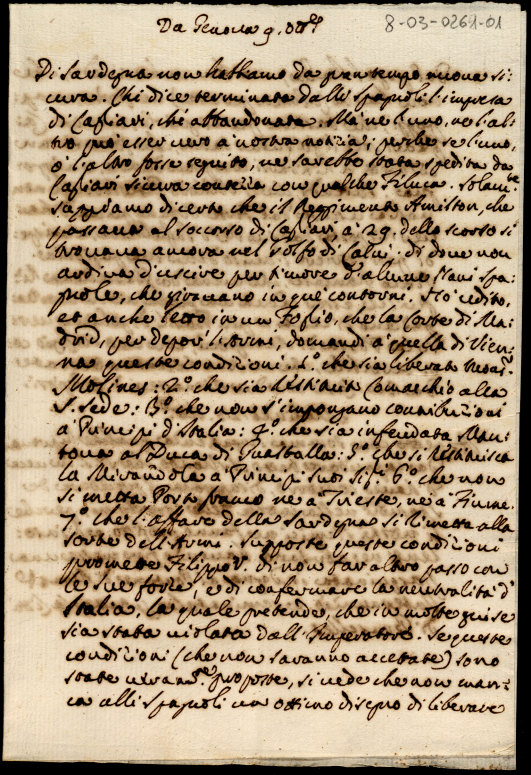 8-03-0269-01
Da Genova 9. 8bre
Di Sardegna non habbiamo da gran tempo nuova si=
cura. Chi dice terminata dalli Spagnoli l'impresa
di Cagliari, chi abbandonata. Ma ne l'uno, ne l'al=
tro può esser vero a nostra notizia; perche se l'uno,
ò l'altro fosse seguito, ne sarebbe stata spedita da
Cagliari sicura contezza con qualche Filuca. Solamte
sappiamo di certo che il Reggimento Amilton, che
passava al soccorso di Cagliari, à 29. dello scorso si
trovava ancora nel Golfo di Calvi, di dove non
ardiva d'uscire per timore d'alcune Navi Spa=
gnole, che giravano in que' contorni. Hò udito,
et anche letto in un Foglio, che la Corte di Ma=
drid, per depor l'Armi, domandi a quella di Vien=
na queste condizioni. 1.º che sia liberato Monsr
Molines: 2.º che sia restituito Comacchio alla
S. Sede: 3.º che non s'impongano contribuzioni
a' Principi d'Italia: 4.º che sia infeudata Man=
tova al Duca di Guastalla: 5.º che si restituisca
la Mirandola a' Principi suoi 6.º che non
si metta Porto franco ne a Trieste, ne a Fiume.
7.º che l'affare della Sardegna si rimetta alla
sorte dell'Armi. Supposte queste condizioni
promette Filippo V. di non far altro passo con
le sue forze, e di confermare la neutralità d'
Italia, la quale pretende, che in molte guise
sia stata violata dall'Imperatore. Se queste
condizioni (che non saranno accettate) sono
state veramte proposte, si vede che non man=
ca alli Spagnoli un ottimo disegno di liberare